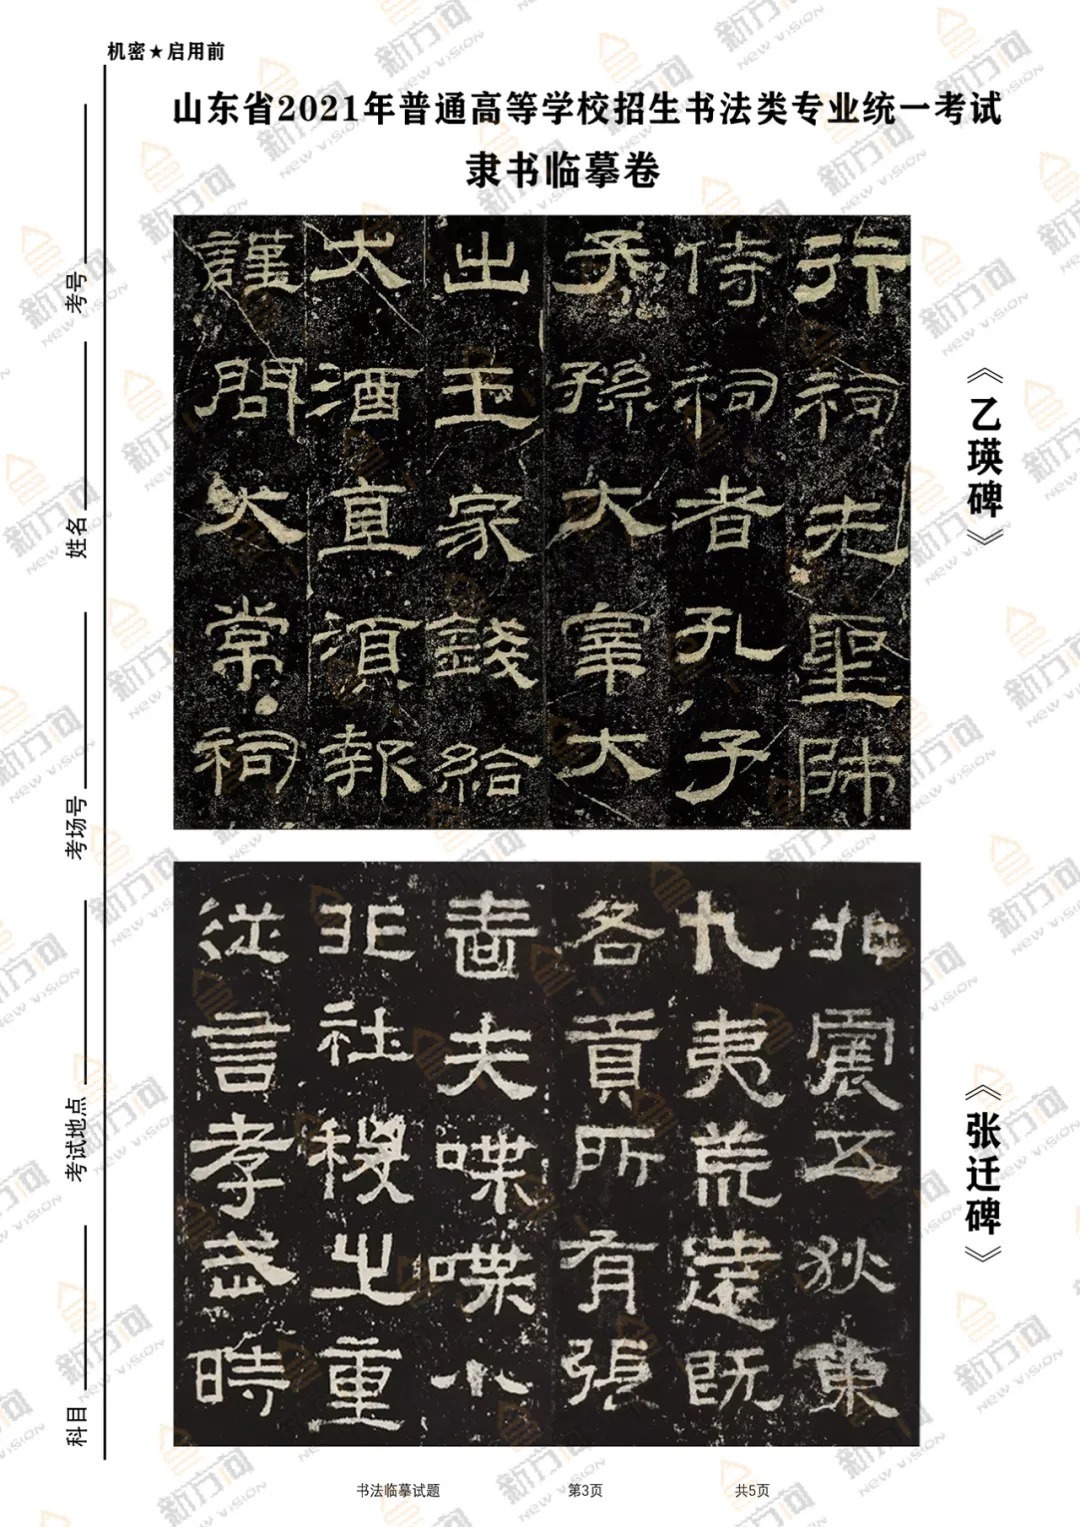 机密★启用前
山东省2021年普通高等学校招生书法类专业统一考试
隶书临摹卷
考号
姓名
考场号
考试地点
科目
行祠先聖師
侍祠者孔子
子孫大宰大
出王家錢給
犬酒直須報
謹問大常祠
《乙瑛碑》
北震五狄東
九夷荒遠既
各貢所有張
嗇夫喋喋小
非社稷之重
從言孝武時
《张迁碑》
书法临摹试题
第3页
共5页
新方向
NEW VISION